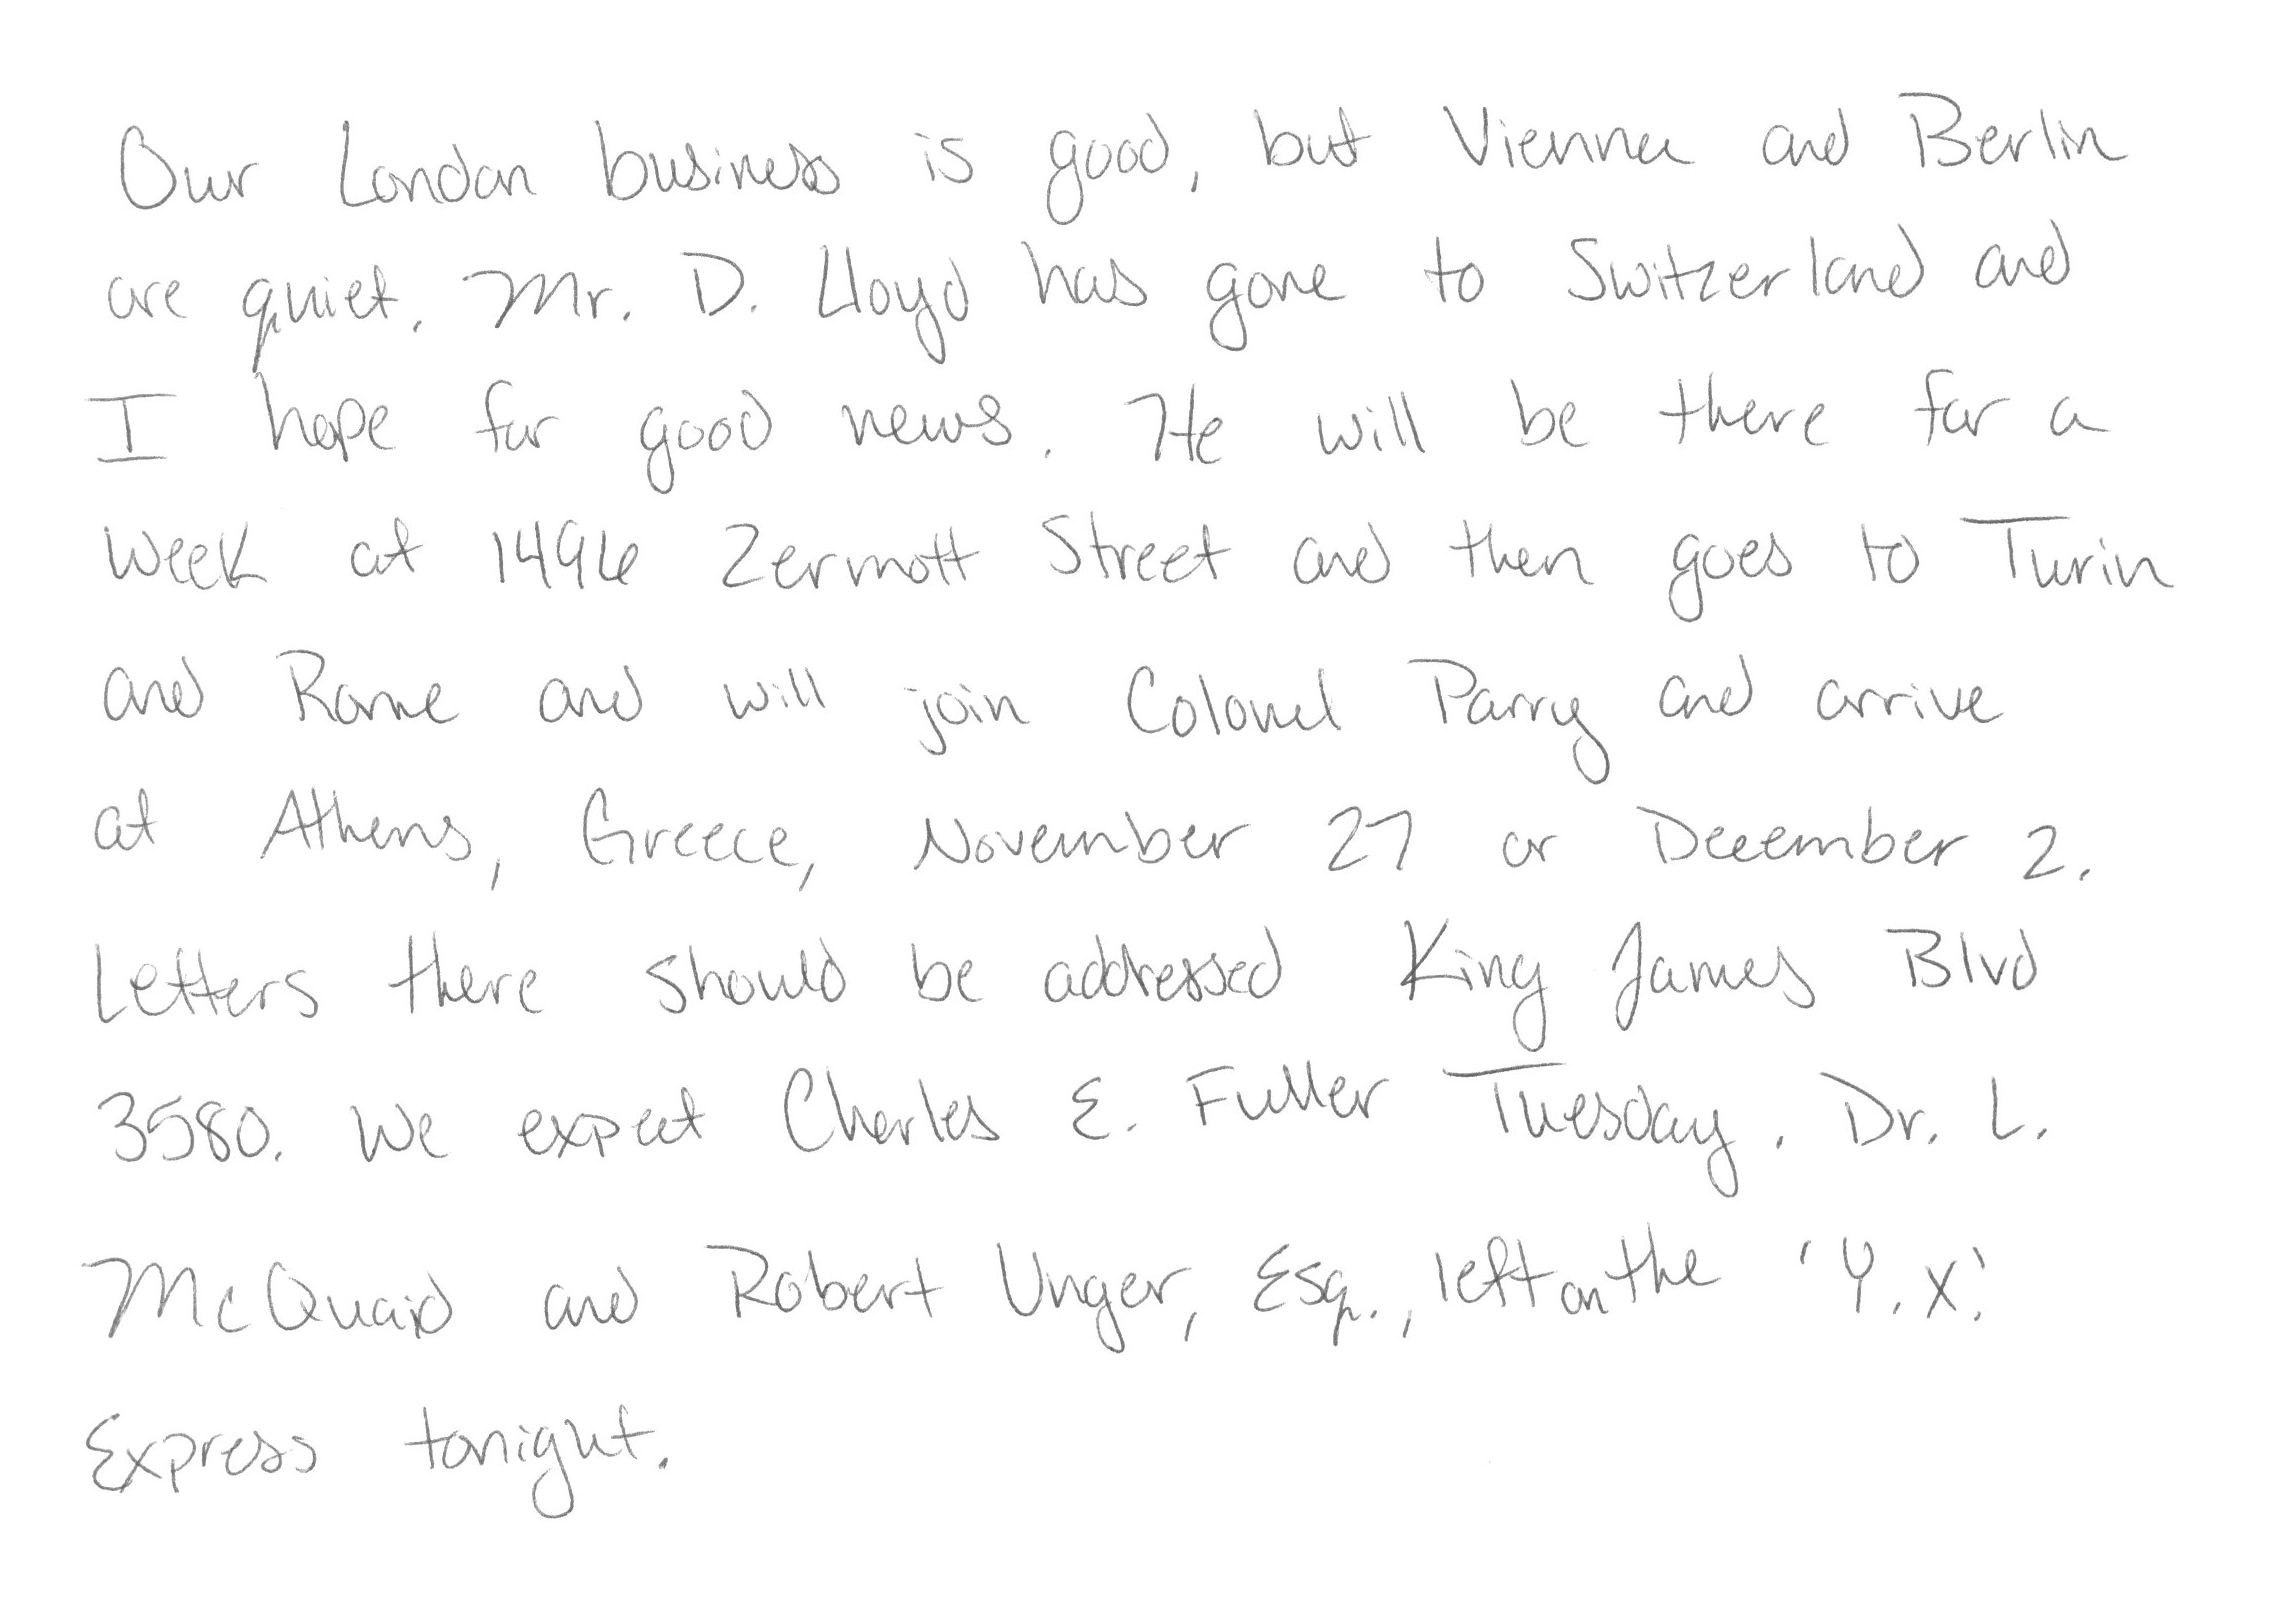 Our London business is good, but Vienna and Berlin
are quiet. Mr. D. Lloyd has gone to Switzerland and
I hope for good news. He will be there for a
week at 1496 Zermott Street and then goes to Turin
and Rome and will join Colonel Parry and arrive
at Athens, Greece, November 27 or December 2.
Letters there should be addressed King James Blvd
3580. We expect Charles E. Fuller Tuesday. Dr. L.
McQuaid and Robert Unger, Esq., left on the 'Y.X.'
Express tonight.